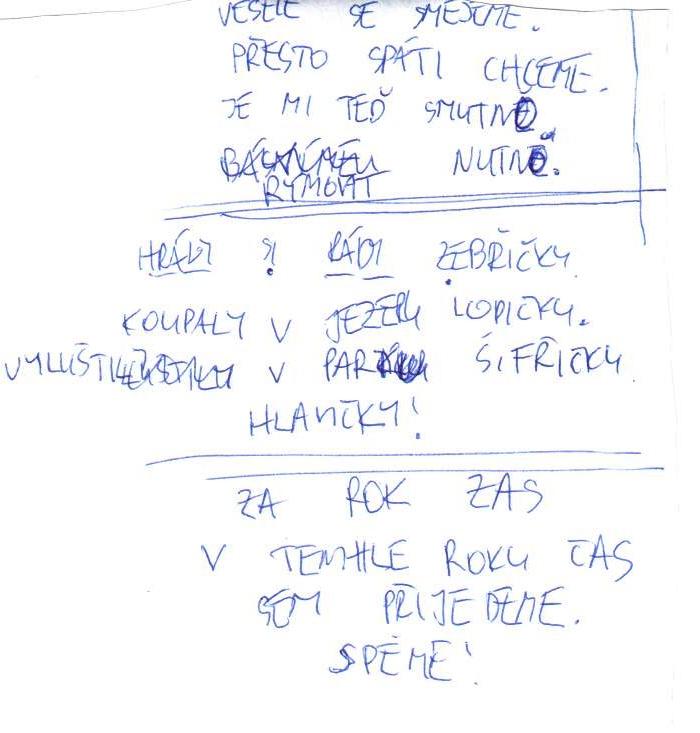 VESELE SE SMĚJEME.
PŘESTO SPÁTI CHCEME.
JE MI TEĎ SMUTNO.
NUTNO.
RÝMOVAT
HRÁLY SI RÁDI ŽEBŘÍČKY
KOUPALY V JEZERU LODIČKY.
V ŠIFŘIČKY
HLAVIČKY!
ZA ROK ZAS
V TEMHLE ROKU ČAS
SEM PŘIJEDEME.
SPĚME!